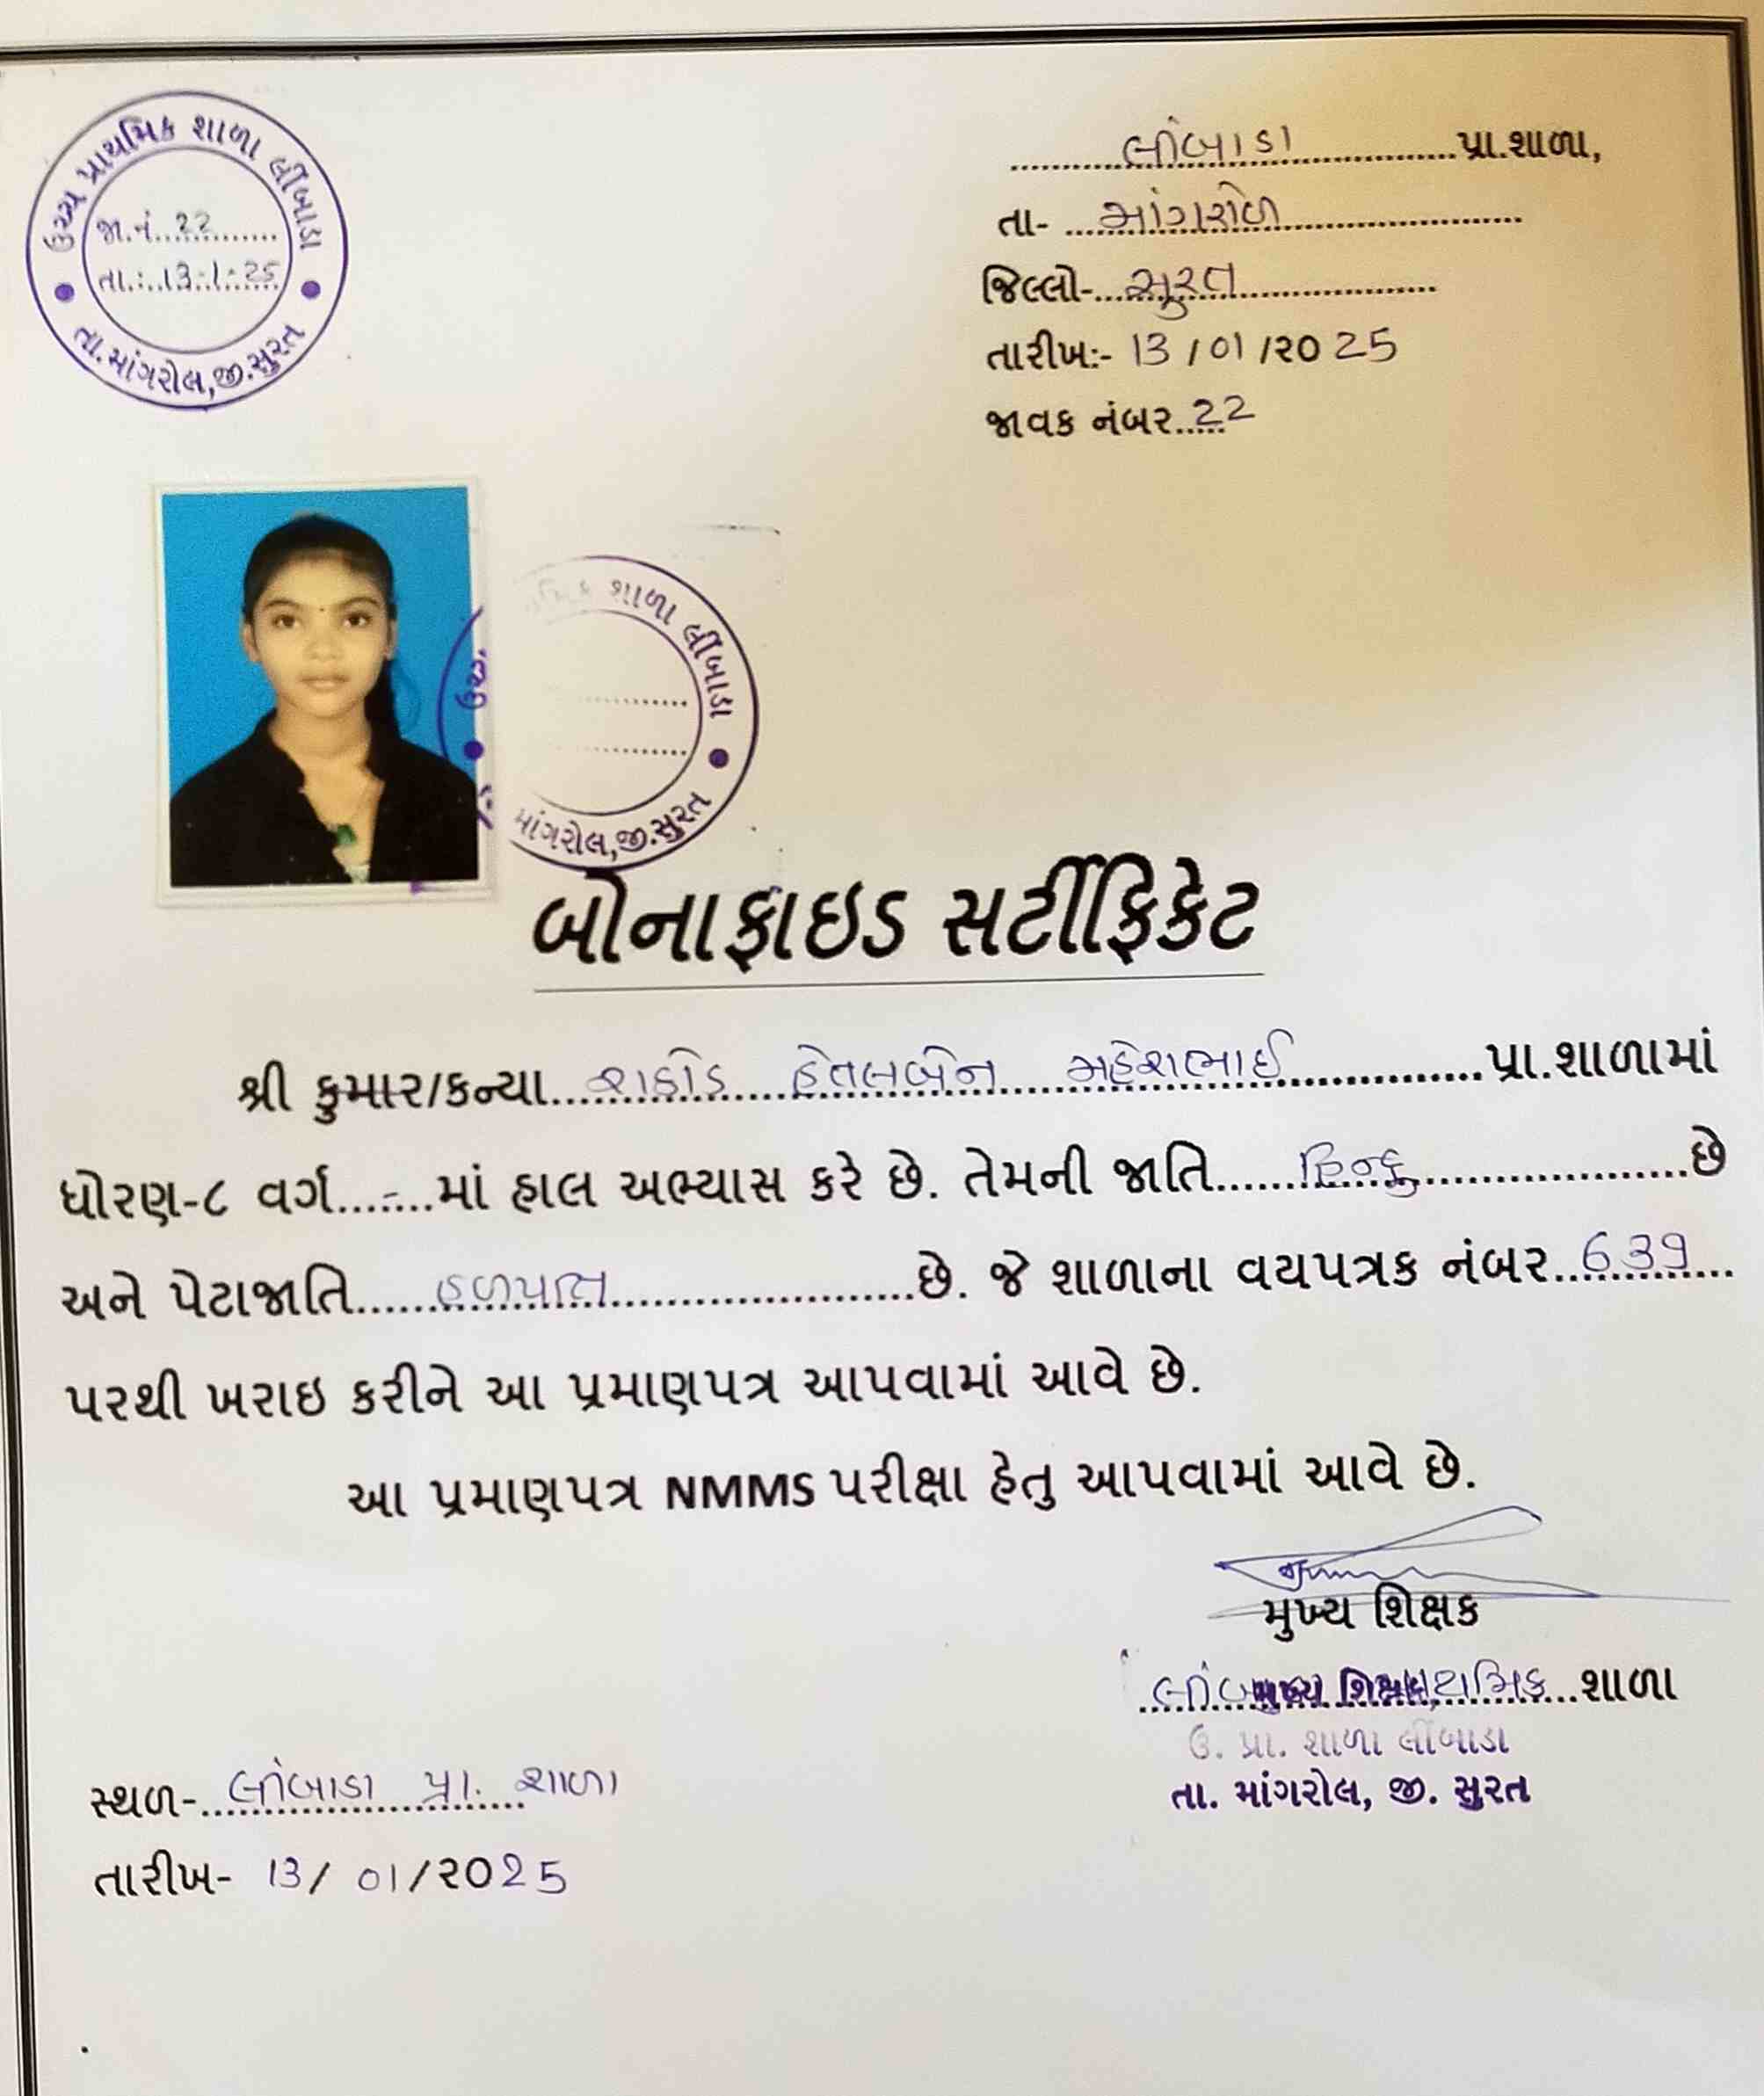 ઉચ્ચ પ્રાથમિક શાળા લીંબાડા
જા.નં. 22
તા.: 13-1-25
તા.માંગરોલ,જી.સુરત
લીંબાડા પ્રા.શાળા,
તા- માંગરોળ
જિલ્લો- સુરત
તારીખ:- 13/01/૨૦25
જાવક નંબર 22
શાળા લીંબાડા
માંગરોલ,જી.સુરત
બોનાફાઇડ સર્ટીફિકેટ
શ્રી કુમાર/કન્યા રાઠોડ હેતલબેન મહેશભાઈ પ્રા.શાળામાં
ધોરણ-૮ વર્ગ - માં હાલ અભ્યાસ કરે છે. તેમની જાતિ હિન્દુ છે
અને પેટાજાતિ હળપતિ છે. જે શાળાના વયપત્રક નંબર 639
પરથી ખરાઇ કરીને આ પ્રમાણપત્ર આપવામાં આવે છે.
આ પ્રમાણપત્ર NMMS પરીક્ષા હેતુ આપવામાં આવે છે.
મુખ્ય શિક્ષક
મુખ્ય શિક્ષક શાળા
ઉ. પ્રા. શાળા લીંબાડા
તા. માંગરોલ, જી. સુરત
સ્થળ- લીંબાડા પ્રા. શાળા
તારીખ- 13/01/૨૦25